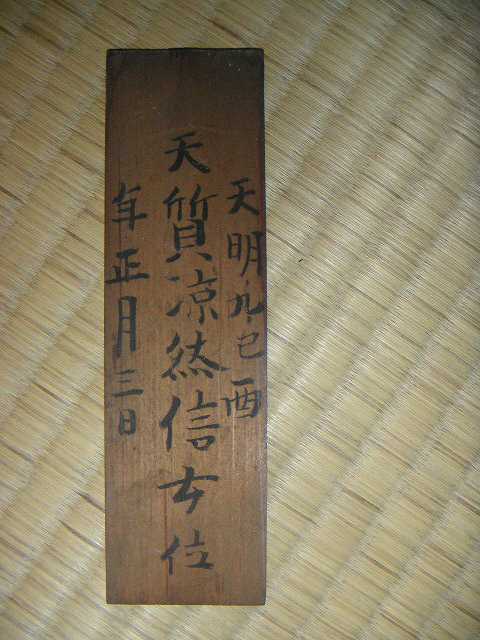 天明九己酉
天質凉然信女位
年正月三日